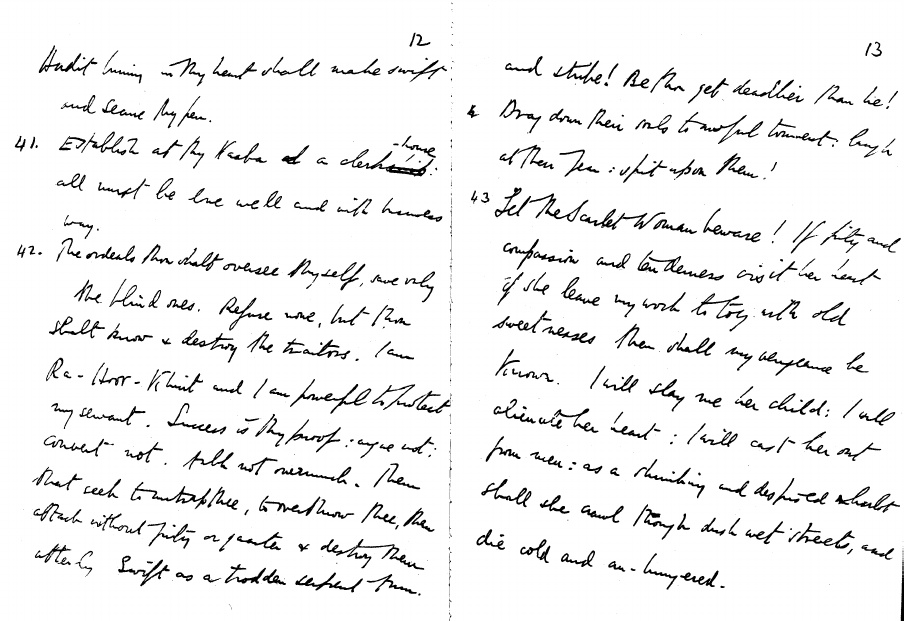 12
Hadit burning in thy heart shall make swift
and secure thy pen.
41. Establish at thy Kaaba a clerk-house:
all must be done well and with business
way.
42. The ordeals thou shalt oversee thyself, save only
the blind ones. Refuse none, but thou
shalt know & destroy the traitors. I am
Ra-Hoor-Khuit and I am powerful to protect
my servant. Success is thy proof: argue not:
convert not: talk not overmuch. Them
that seek to entrap thee, to overthrow thee, them
attack without pity or quarter & destroy them
utterly. Swift as a trodden serpent turn
13
and strike! Be thou yet deadlier than he!
Drag down their souls to awful torment: laugh
at their fear: spit upon them!
43 Let the Scarlet Woman beware! If pity and
compassion and tenderness visit her heart
if she leave my work to toy with old
sweetnesses then shall my vengeance be
known. I will slay me her child: I will
alienate her heart: I will cast her out
from men: as a shrinking and despised harlot
shall she crawl through dusk wet streets, and
die cold and an-hungered.